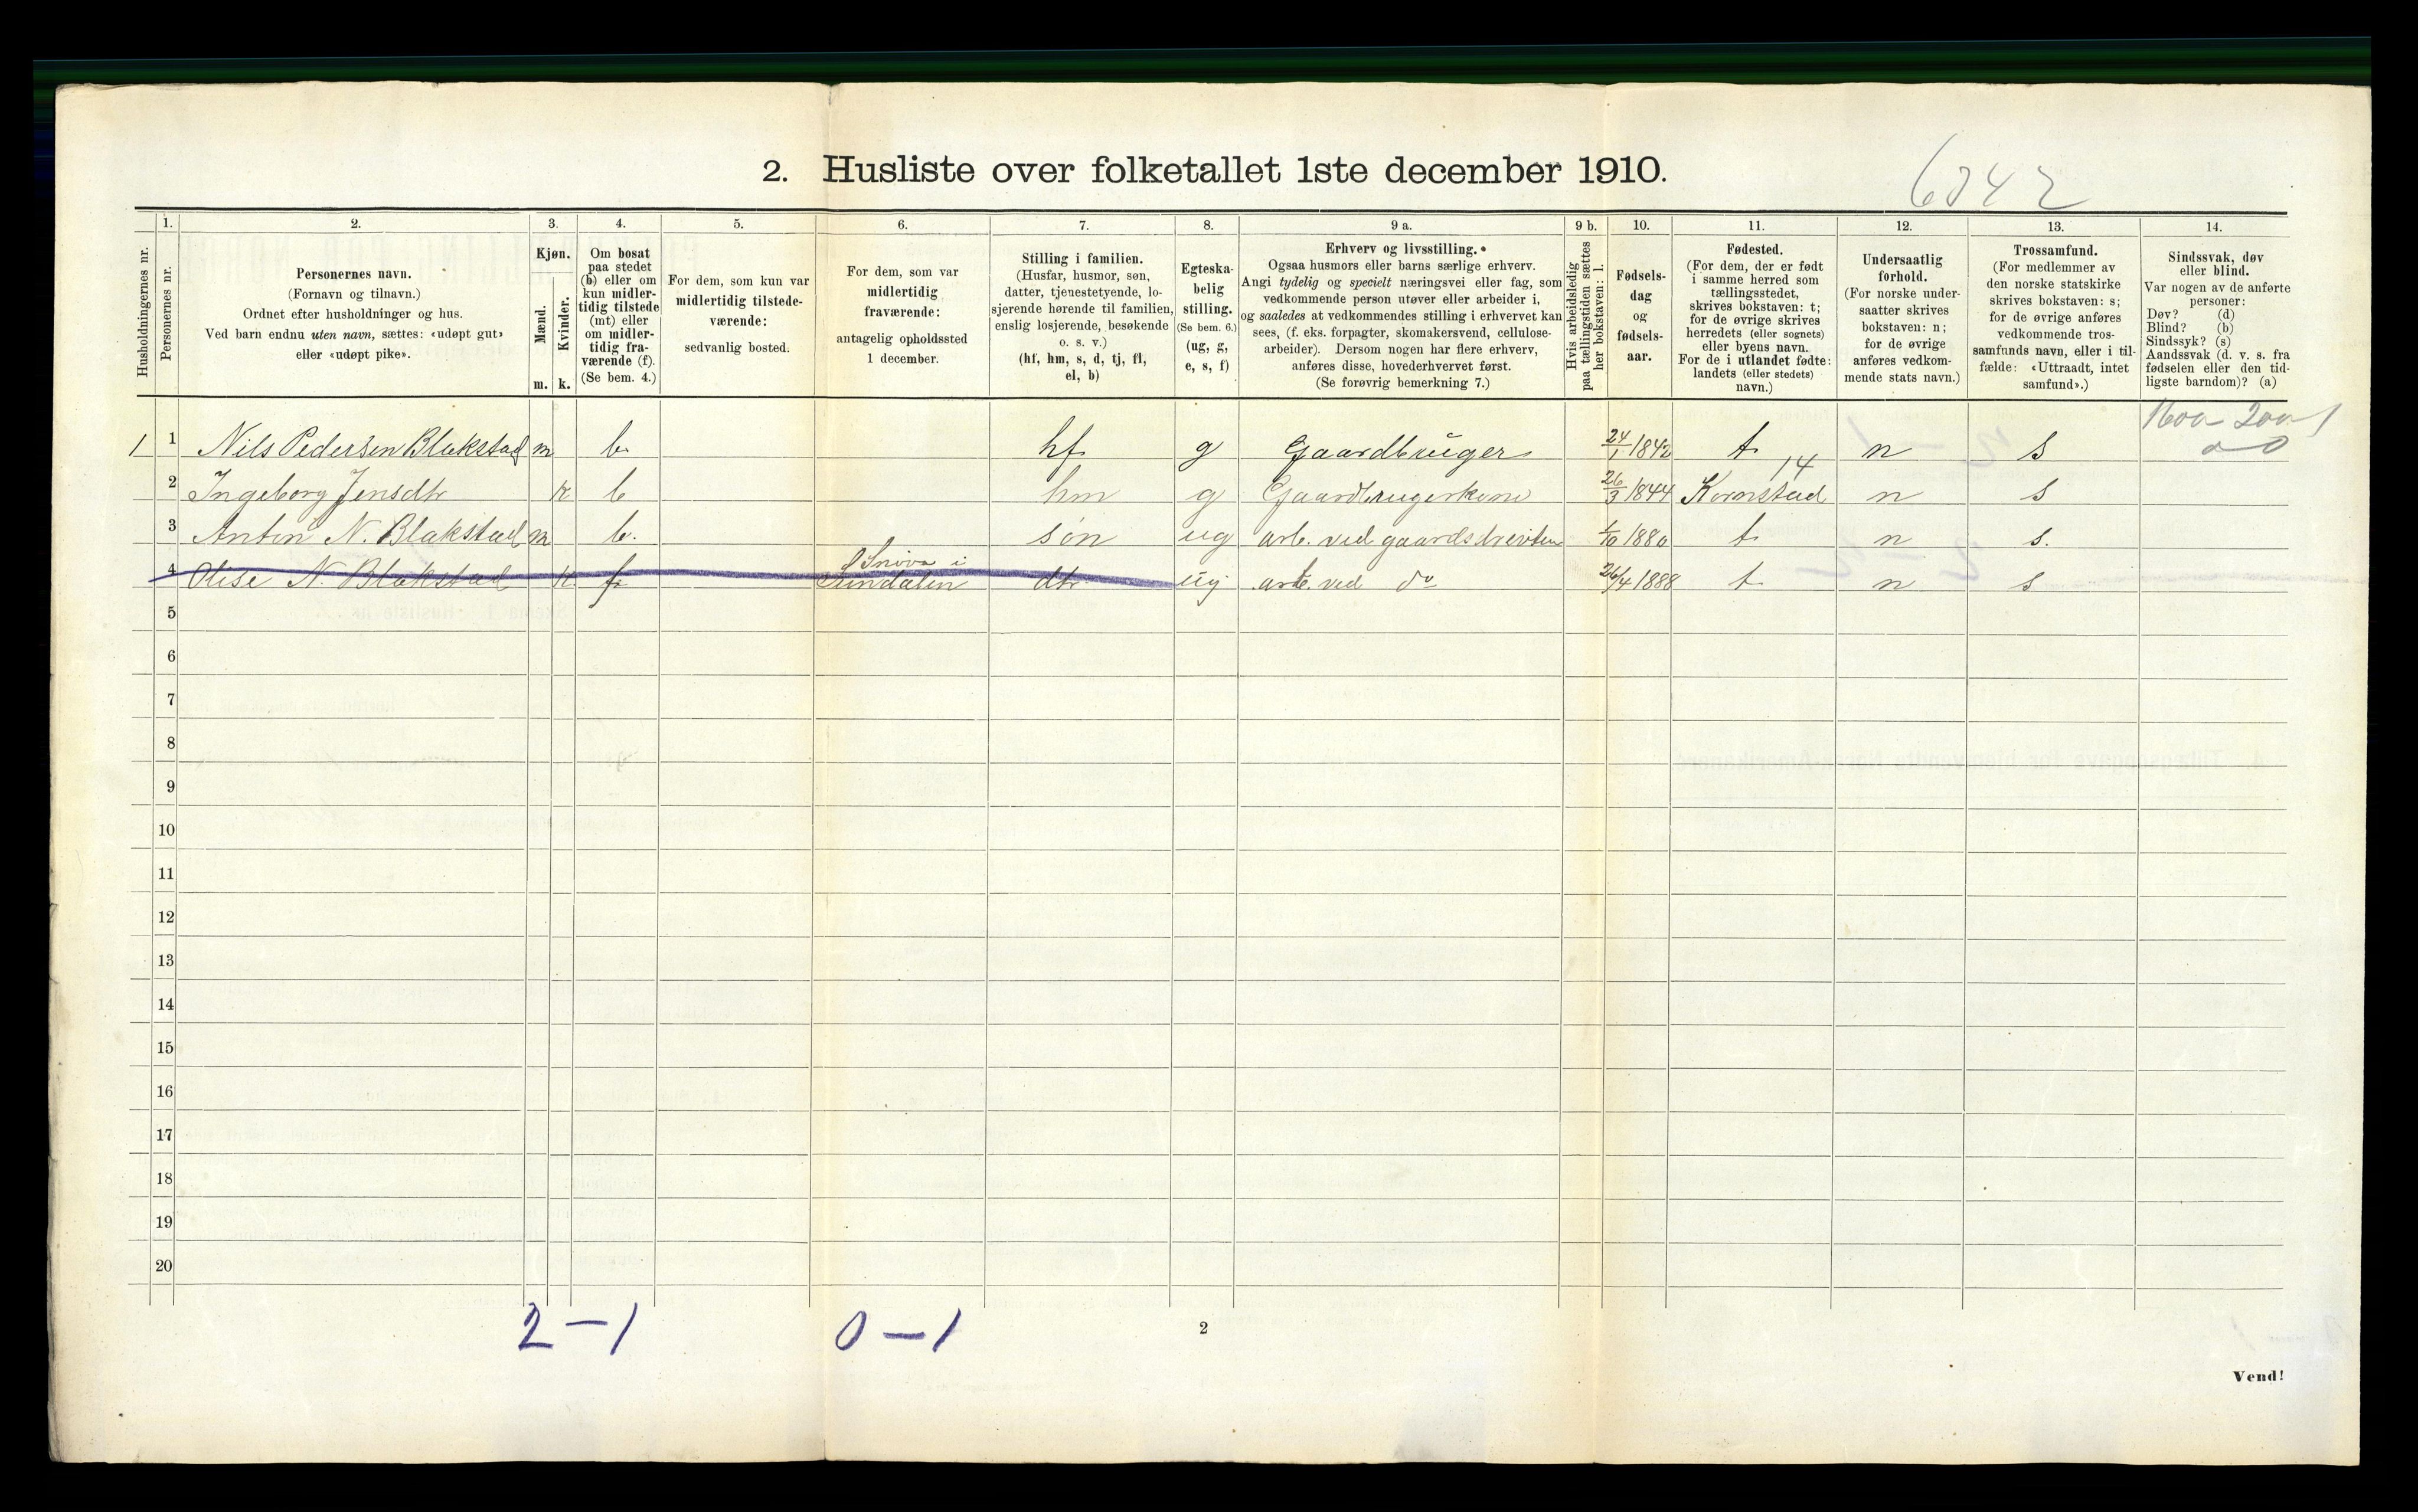 2. Husliste over folketallet 1ste december 1910.
6342
Husholdningernes nr.
1.
Personernes nr.
2.
Personernes navn.
(Fornavn og tilnavn.)
Ordnet efter husholdninger og hus.
Ved barn endnu uten navn, sættes: «udøpt gut»
eller «udøpt pike».
3.
Kjøn.
Mænd.
Kvinder.
m. k.
4.
Om bosat
paa stedet
(b) eller om
kun midler-
tidig tilstede
(mt) eller
om midler-
tidig fra-
værende (f).
(Se bem. 4.)
5.
For dem, som kun var
midlertidig tilstede-
værende:
sedvanlig bosted.
6.
For dem, som var
midlertidig
fraværende:
antagelig opholdssted
1 december.
7.
Stilling i familien.
(Husfar, husmor, søn,
datter, tjenestetyende, lo-
sjerende hørende til familien,
enslig losjerende, besøkende
o. s. v.)
(hf, hm, s, d, tj, fl,
el, b)
8.
Egteska-
belig
stilling.
(Se bem. 6.)
(ug, g,
e, s, f)
9 a.
Erhverv og livsstilling.
Ogsaa husmors eller barns særlige erhverv.
Angi tydelig og specielt næringsvei eller fag, som
vedkommende person utøver eller arbeider i,
og saaledes at vedkommendes stilling i erhvervet kan
sees, (f. eks. forpagter, skomakersvend, cellulose-
arbeider). Dersom nogen har flere erhverv,
anføres disse, hovederhvervet først.
(Se forøvrig bemerkning 7.)
9 b.
Hvis arbeidsledig
paa tællingstiden sættes
her bokstaven: l.
10.
Fødsels-
dag
og
fødsels-
aar.
11.
Fødested.
(For dem, der er født
i samme herred som
tællingsstedet,
skrives bokstaven: t;
for de øvrige skrives
herredets (eller sognets)
eller byens navn.
For de i utlandet fødte:
landets (eller stedets)
navn.)
12.
Undersaatlig
forhold.
(For norske under-
saatter skrives
bokstaven: n;
for de øvrige
anføres vedkom-
mende stats navn.)
13.
Trossamfund.
(For medlemmer av
den norske statskirke
skrives bokstaven: s;
for de øvrige anføres
vedkommende tros-
samfunds navn, eller i til-
fælde: «Uttraadt, intet
samfund».)
14.
Sindssvak, døv
eller blind.
Var nogen av de anførte
personer:
Døv? (d)
Blind? (b)
Sindssyk? (s)
Aandssvak (d. v. s. fra
fødselen eller den tid-
ligste barndom)? (a)
1 1 Nils Pedersen Blakstad m b. hf g Gaardbruger 24/1 1842 t. n s
14
2 Ingeborg Jensdtr k b hm g Gaardbrugerkone 26/3 1844 Kornstad n s
3 Anton N. Blakstad m b. søn ug arb. ved gaardsdreiften 1/10 1880 t n s.
4 Olise N. Blakstad k f dtr ug arb. ved do 26/4 1888 t n s
5
6
7
8
9
10
11
12
13
14
15
16
17
18
19
20
2 – 1 0 – 1
2
Vend!